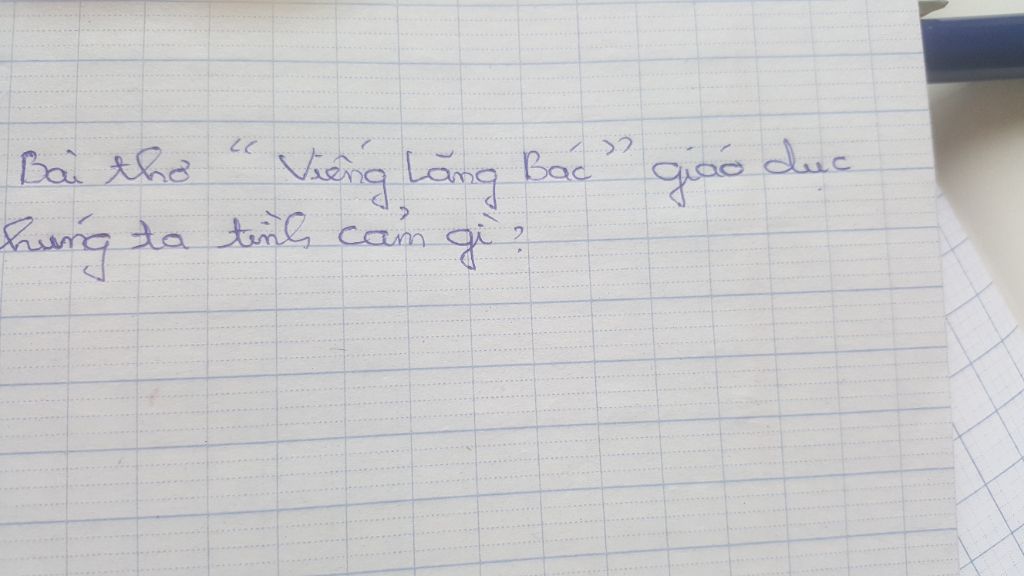 Bài thơ “Viếng Lăng Bác” giáo dục
húng ta tình cảm gì?